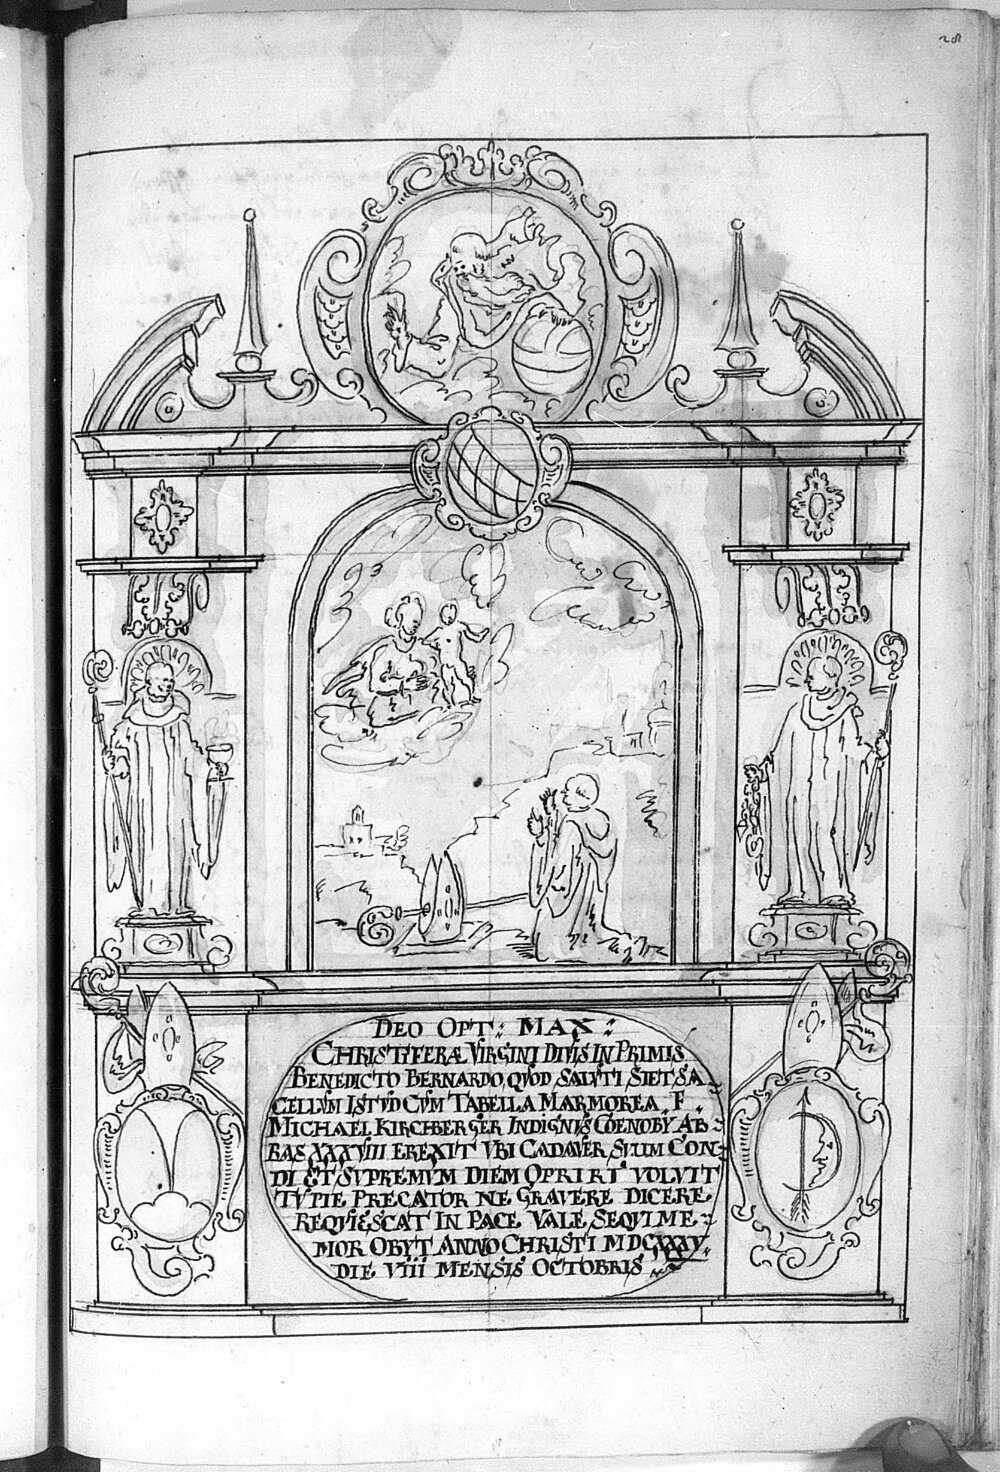 28
DEO OPT: MAX:
CHRISTIFERÆ VIRGINI DIVIS IN PRIMIS
BENEDICTO BERNARDO, QVOD SALVTI SIET SA-
CELLVM ISTVD CVM TABELLA MARMOREA. F.
MICHAEL KIRCHBERGER INDIGNVS COENOBY AB-
BAS XXXVIII EREXIT VBI CADAVER SVVM CON-
DI ET SVPREMVM DIEM OPRIRI VOLVIT
TV PIE PRECATOR NE GRAVERE DICERE
REQVIESCAT IN PACE VALE, SEQVI ME-
MOR OBYT ANNO CHRISTI MDCXXXV.
DIE VIII MENSIS OCTOBRIS